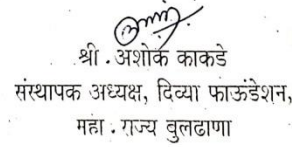 श्री . अशोक काकडे
संस्थापक अध्यक्ष, दिव्या फाऊंडेशन,
महा . राज्य वुलढाणा